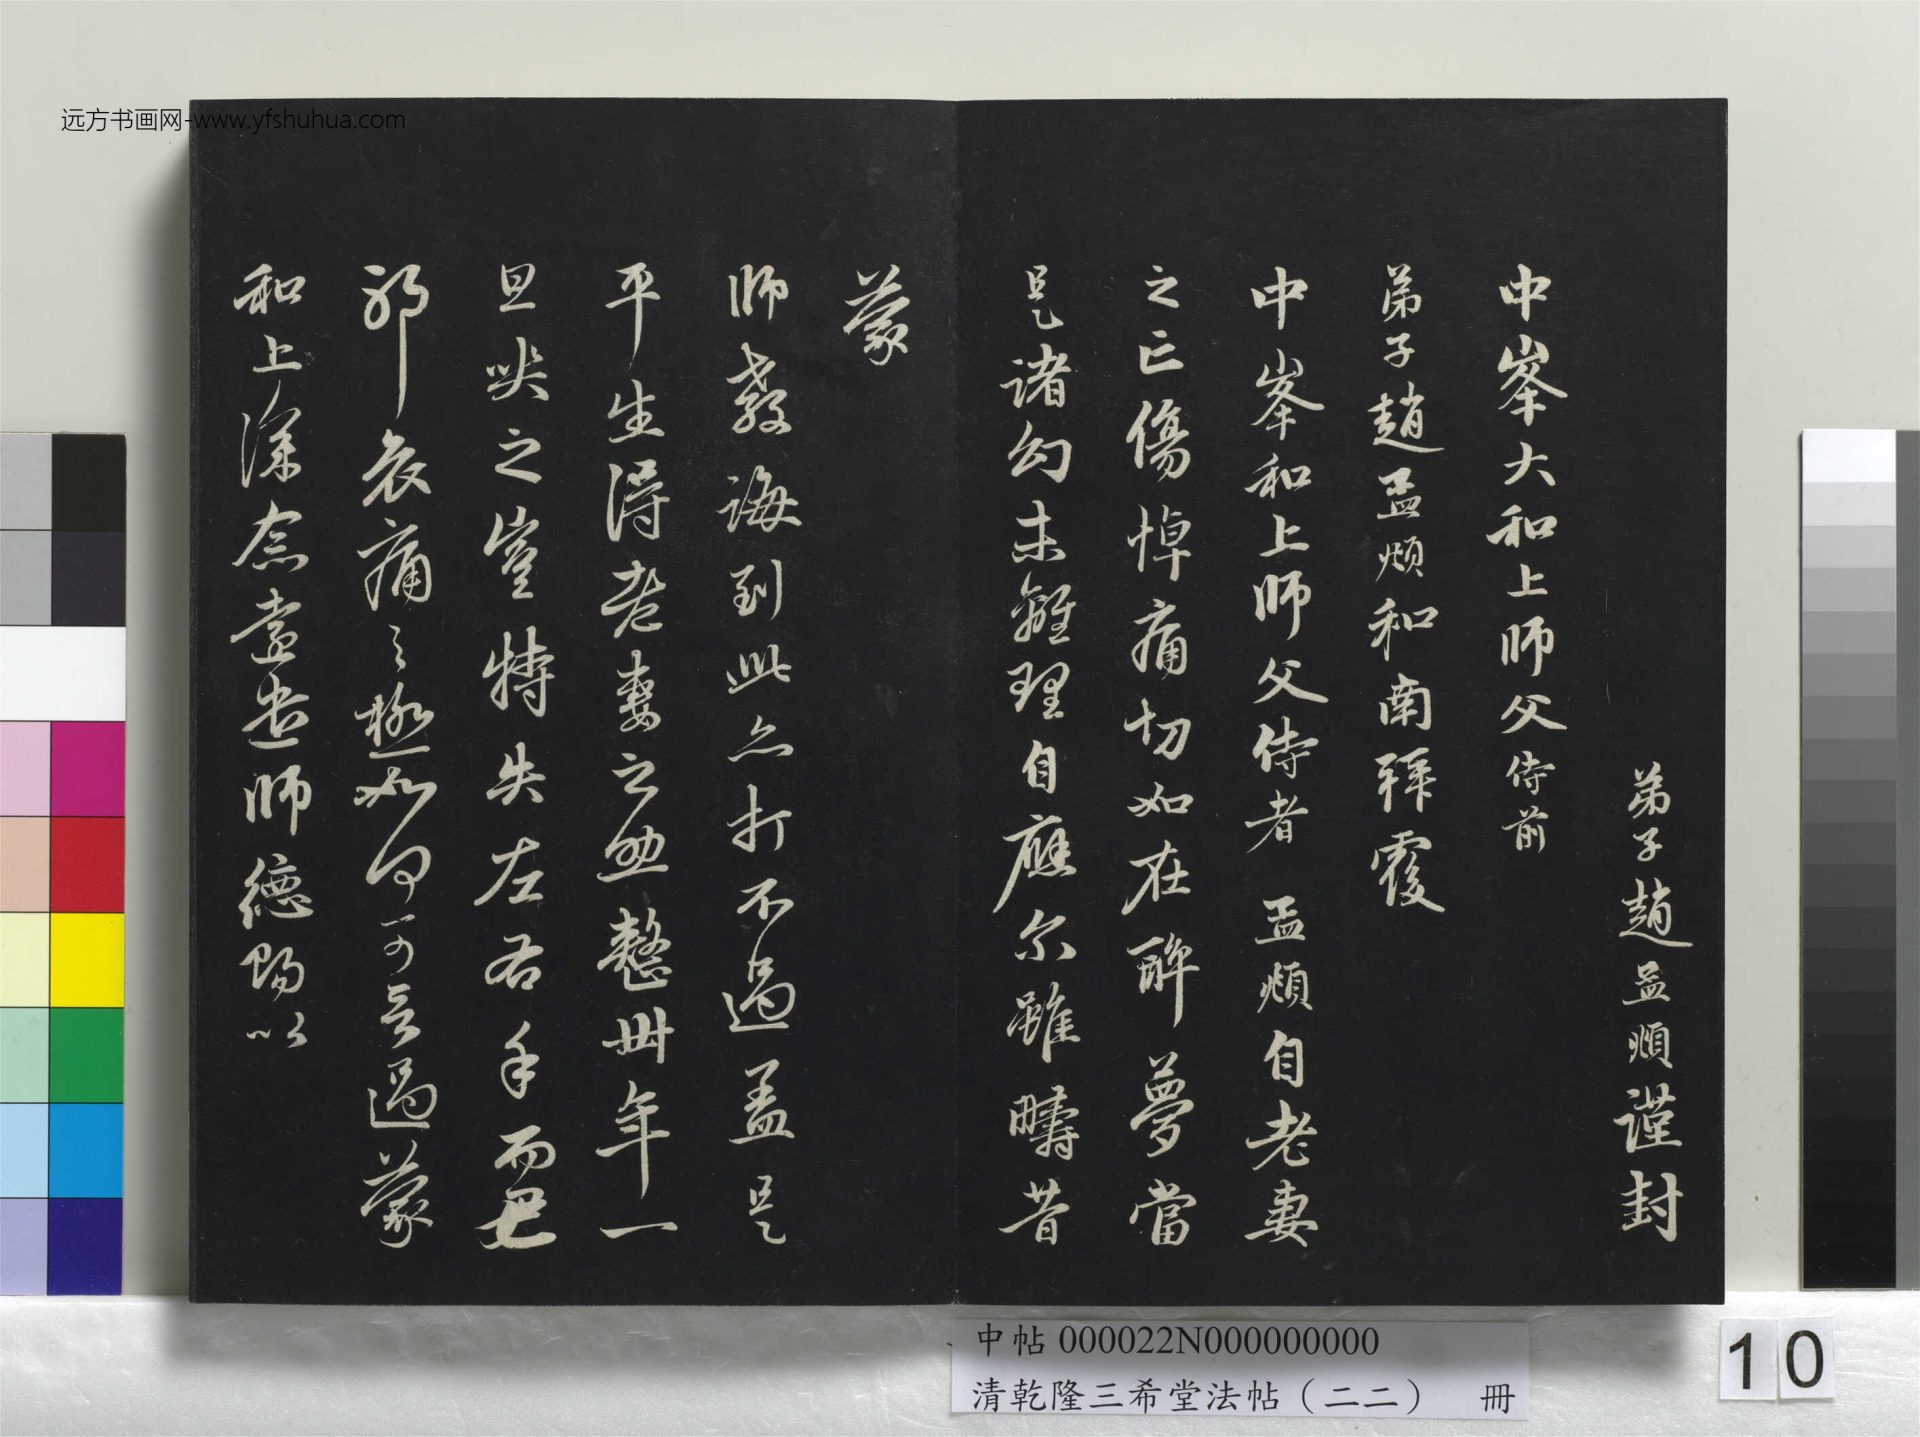 弟子趙孟頫謹封
中峯大和上師父侍前
弟子趙孟頫和南拜覆
中峯和上師父侍者孟頫自老妻
之亡傷悼痛切如在醉夢當
是諸幻未離理自應尔雖疇昔
蒙
師教誨到此亦打不過盖是
平生得老妻之助整卅年一
旦哭之豈特失左右手而已
耶哀痛之極如何可言過蒙
和上深念遠遣師德賜以
远方书画网-www.yfshuhua.com
中帖 000022N000000000
清乾隆三希堂法帖（二二） 冊
10